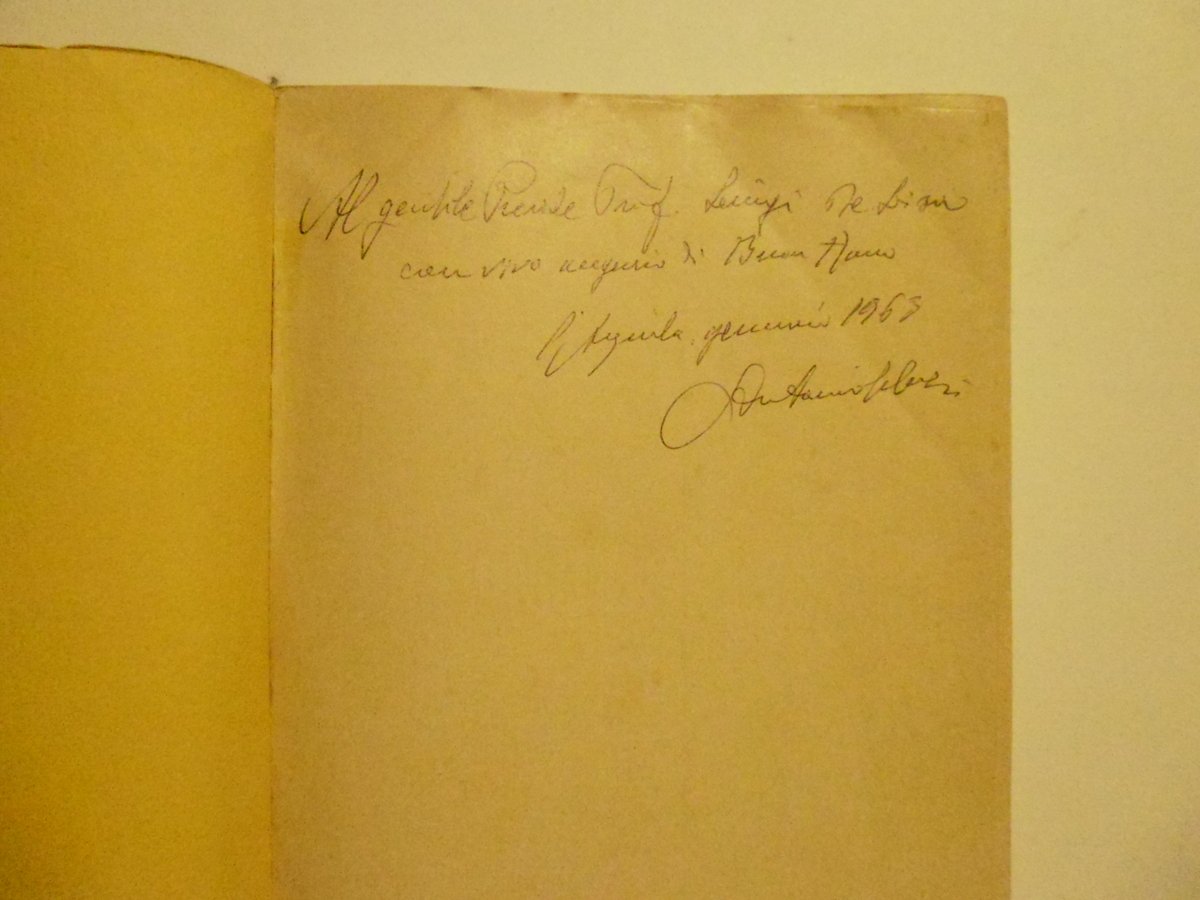 Al gentile Preside Prof. Luigi De Lisa
con vivo augurio di Buon Anno
L'Aquila, gennaio 1963
Antonio